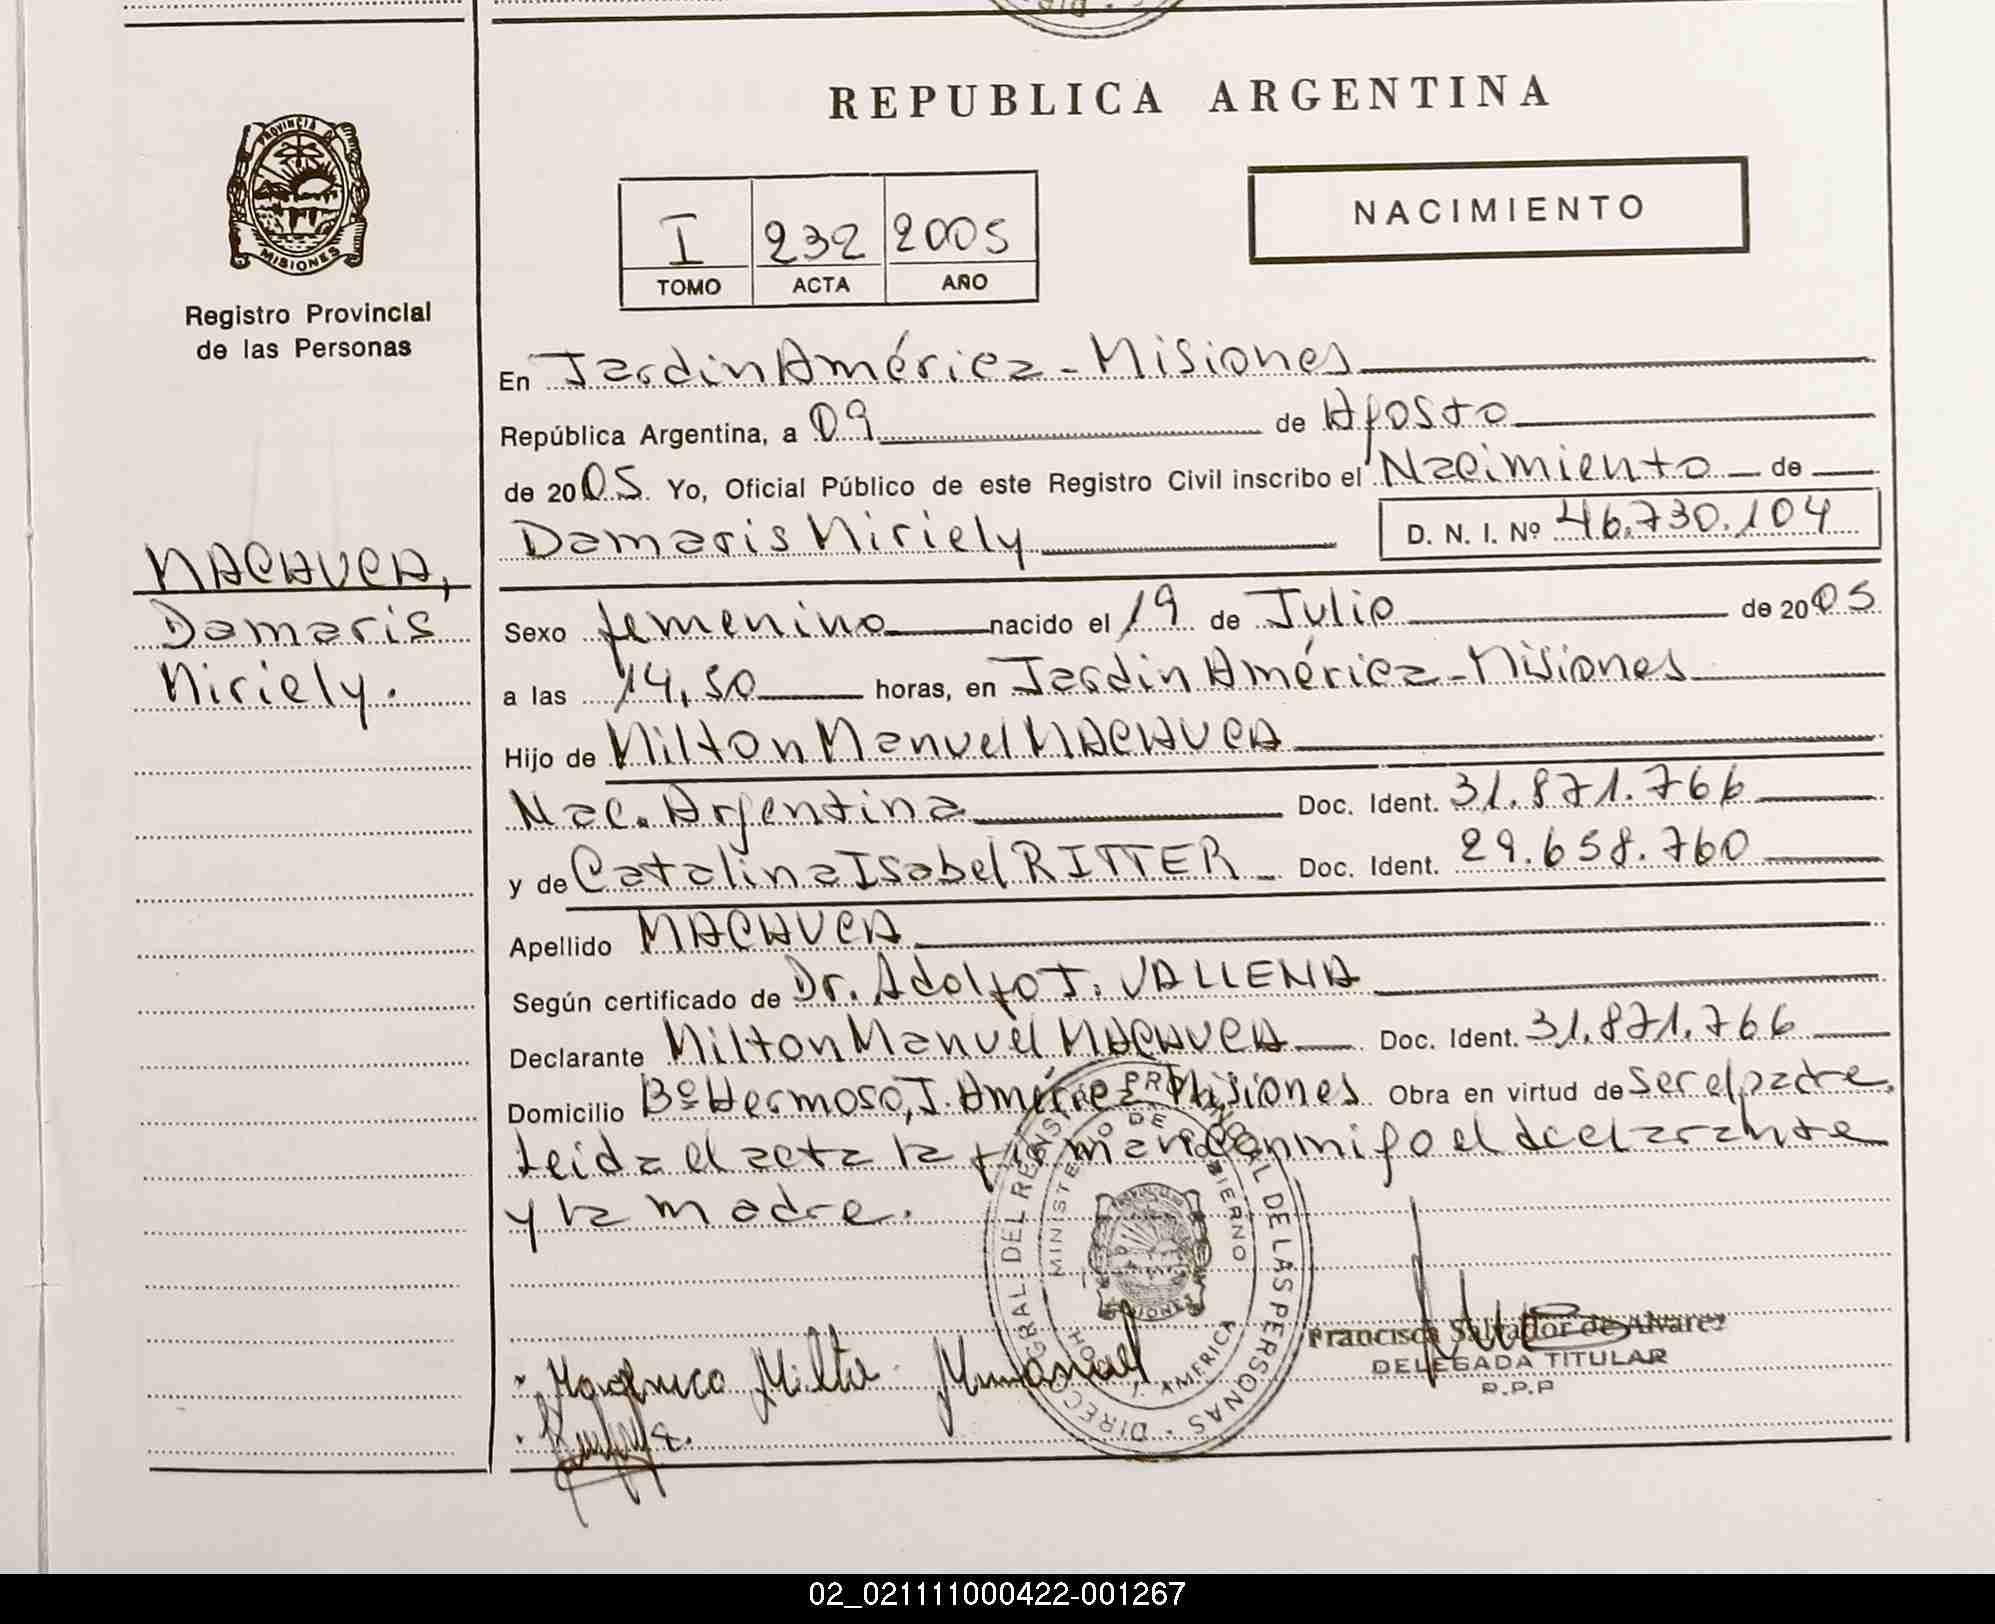 REPUBLICA ARGENTINA
PROVINCIA DE
MISIONES
Registro Provincial
de las Personas
NACIMIENTO
I 232 2005
TOMO ACTA AÑO
En Jardin América - Misiones
República Argentina, a 09 de Agosto
de 2005. Yo, Oficial Público de este Registro Civil inscribo el Nacimiento de
Damaris Miriely D. N. I. Nº 46.730.104
MACAUCA,
Damaris
Miriely.
Sexo femenino nacido el 19 de Julio de 2005
a las 14,50 horas, en Jardin América - Misiones
Hijo de Milton Manuel MACAUCA
Nac. Argentina Doc. Ident. 31.871.766
y de Catalina Isabel RITTER Doc. Ident. 29.658.760
Apellido MACAUCA
Según certificado de Dr. Adolfo J. VALLENA
Declarante Milton Manuel MACAUCA Doc. Ident. 31.871.766
Domicilio Bº Hermoso, J. América Misiones Obra en virtud de ser el padre.
Leida el acta la firman conmigo el declarante
y la madre.
DIRECC GRAL. DEL REGIST PROVINCIAL DE LAS PERSONAS
MINISTERIO DE GOBIERNO
MISIONES
J. AMERICA
Francisca Salvador de Alvarez
DELEGADA TITULAR
R.P.P
02_021111000422-001267